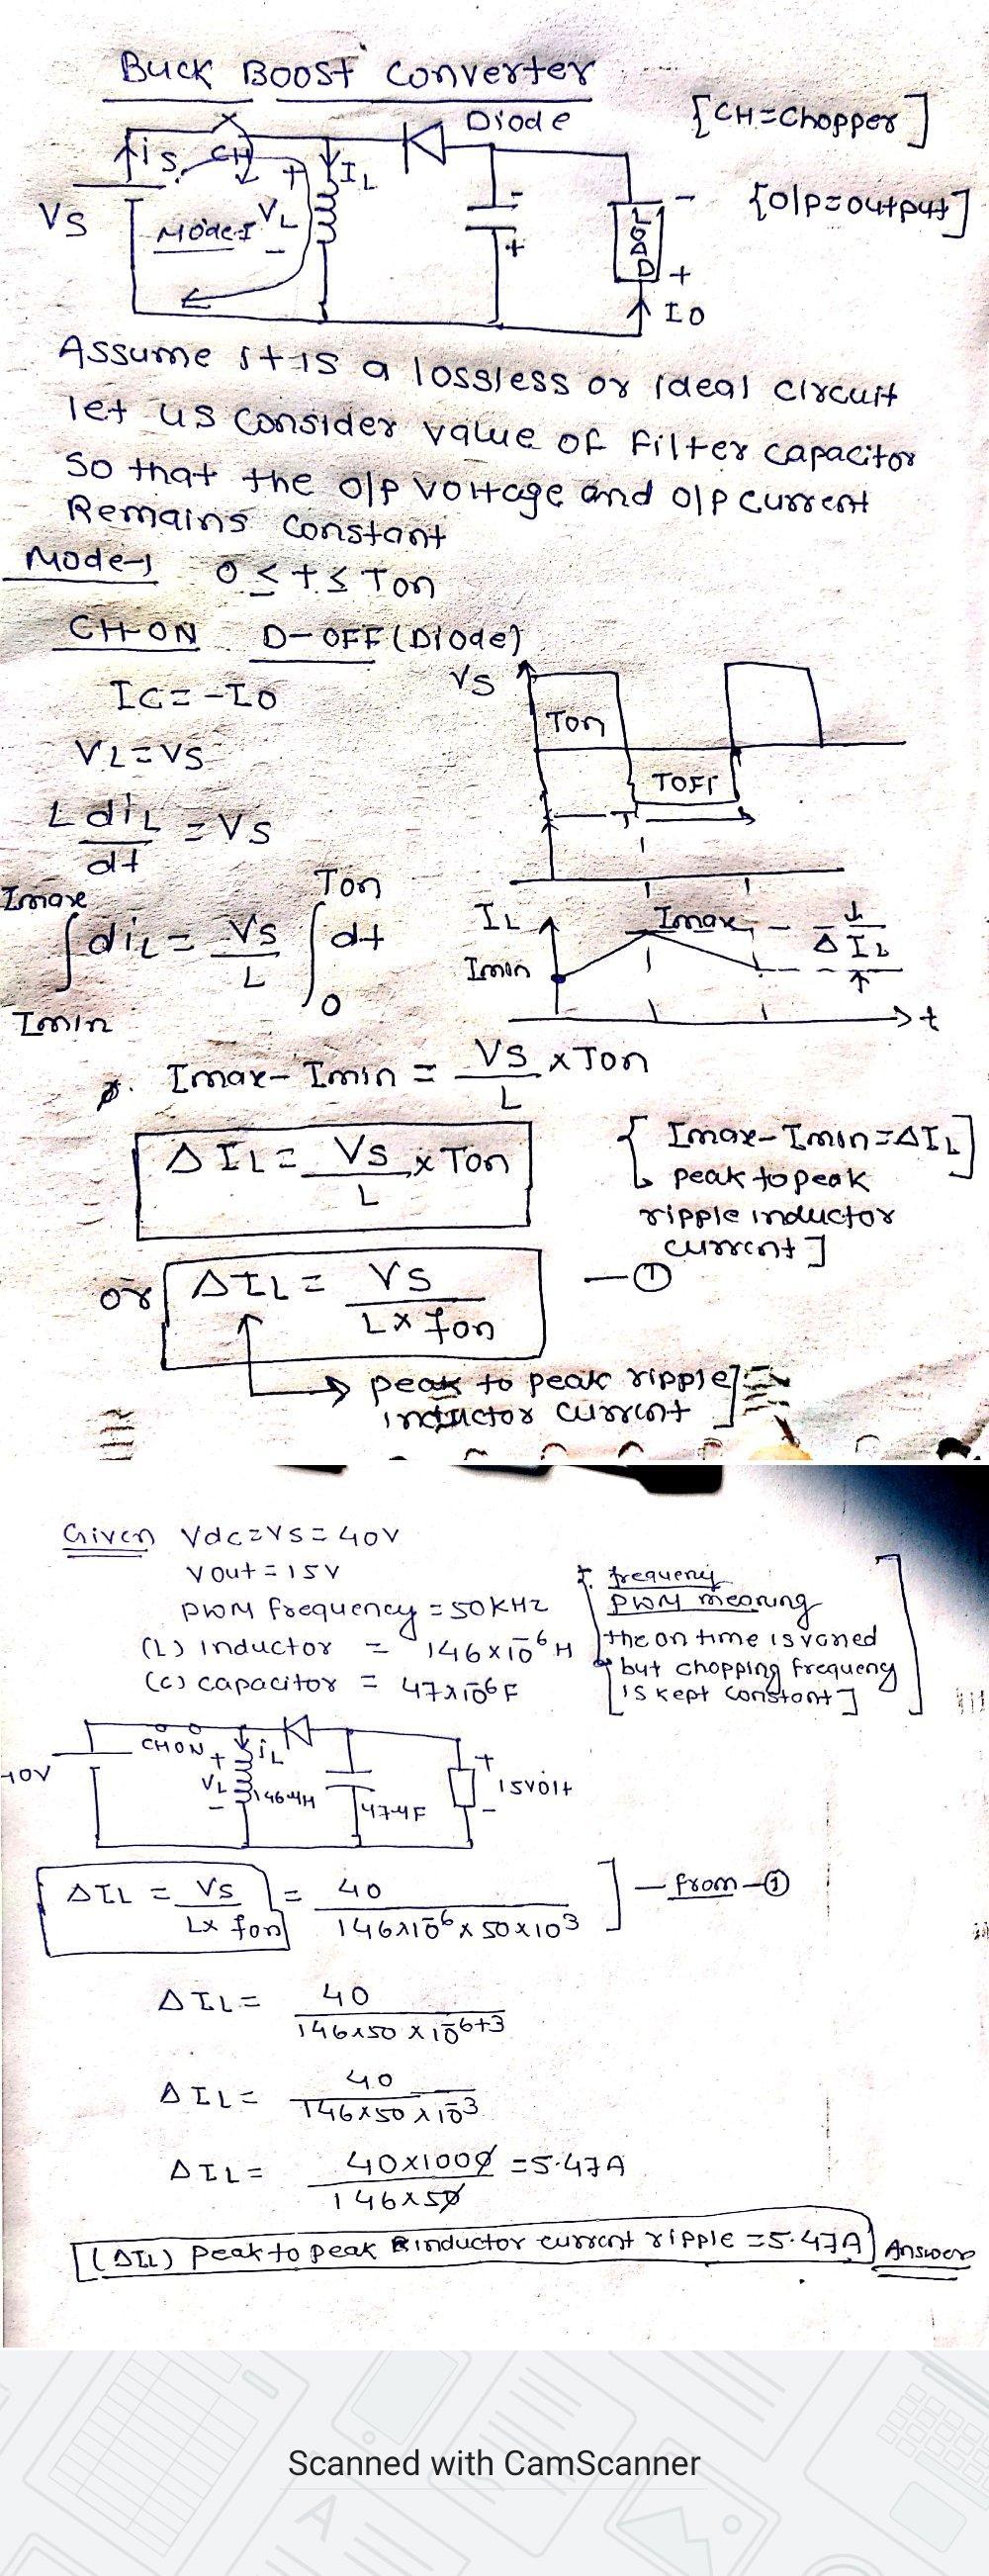 Buck Boost Converter
Diode
[CH=Chopper]
is
CH
+
IL
Vs
Mode-I
VL
-
-
+
LOAD
-
+
{o/p=output]
IO
Assume it is a lossless or ideal circuit
let us consider value of Filter capacitor
So that the o/p voltage and o/p current
Remains constant
Mode-1 0 ≤ t ≤ Ton
CH-ON D-OFF (Diode)
IC = -IO
VL = VS
L diL/dt = VS
∫ Imin Imax diL = Vs/L ∫ 0 Ton dt
VS
Ton
TOFF
T
IL
Imax
Imin
Δ IL
t
Imax - Imin = VS/L x Ton
ΔIL = VS/L x Ton
{ Imax - Imin = ΔIL]
peak to peak
ripple inductor
current ]
or ΔIL = VS/L x fon — ①
peak to peak ripple]
inductor current ]
Given Vdc = VS = 40V
Vout = 15V
PWM frequency = 50KHz
(L) inductor = 146 x 10^-6 H
(C) capacitor = 47 x 10^-6 F
frequency
PWM meaning
the on time is varied
but chopping frequency
is kept constant ]
40V
CHON
+
iL
VL
-
146 μH
47 μF
+
15 volt
-
ΔIL = VS/L x fon = 40/146 x 10^-6 x 50 x 10^3 ] — from — ①
ΔIL = 40/146 x 50 x 10^-6+3
ΔIL = 40/146 x 50 x 10^-3
ΔIL = 40 x 1000/146 x 50 = 5.47A
(ΔIL) Peak to peak inductor current ripple = 5.47A Answer
Scanned with CamScanner